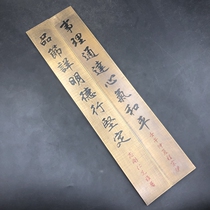 事理通達心氣和平
品節詳明德行堅定